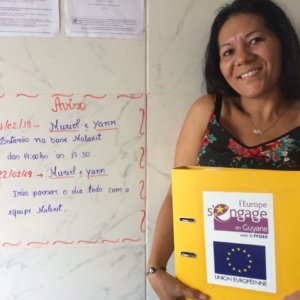 Aviso
/02/19 → Muriel e Yann
Estarão na base Malakit
das 14:00hs an 17:30
22/02/19 → Muriel e Yann
Irão passar o dia todo com a
equipe Malakit.
l'Europe
s'engage
en Guyane
avec le FEDER
UNION EUROPÉENNE